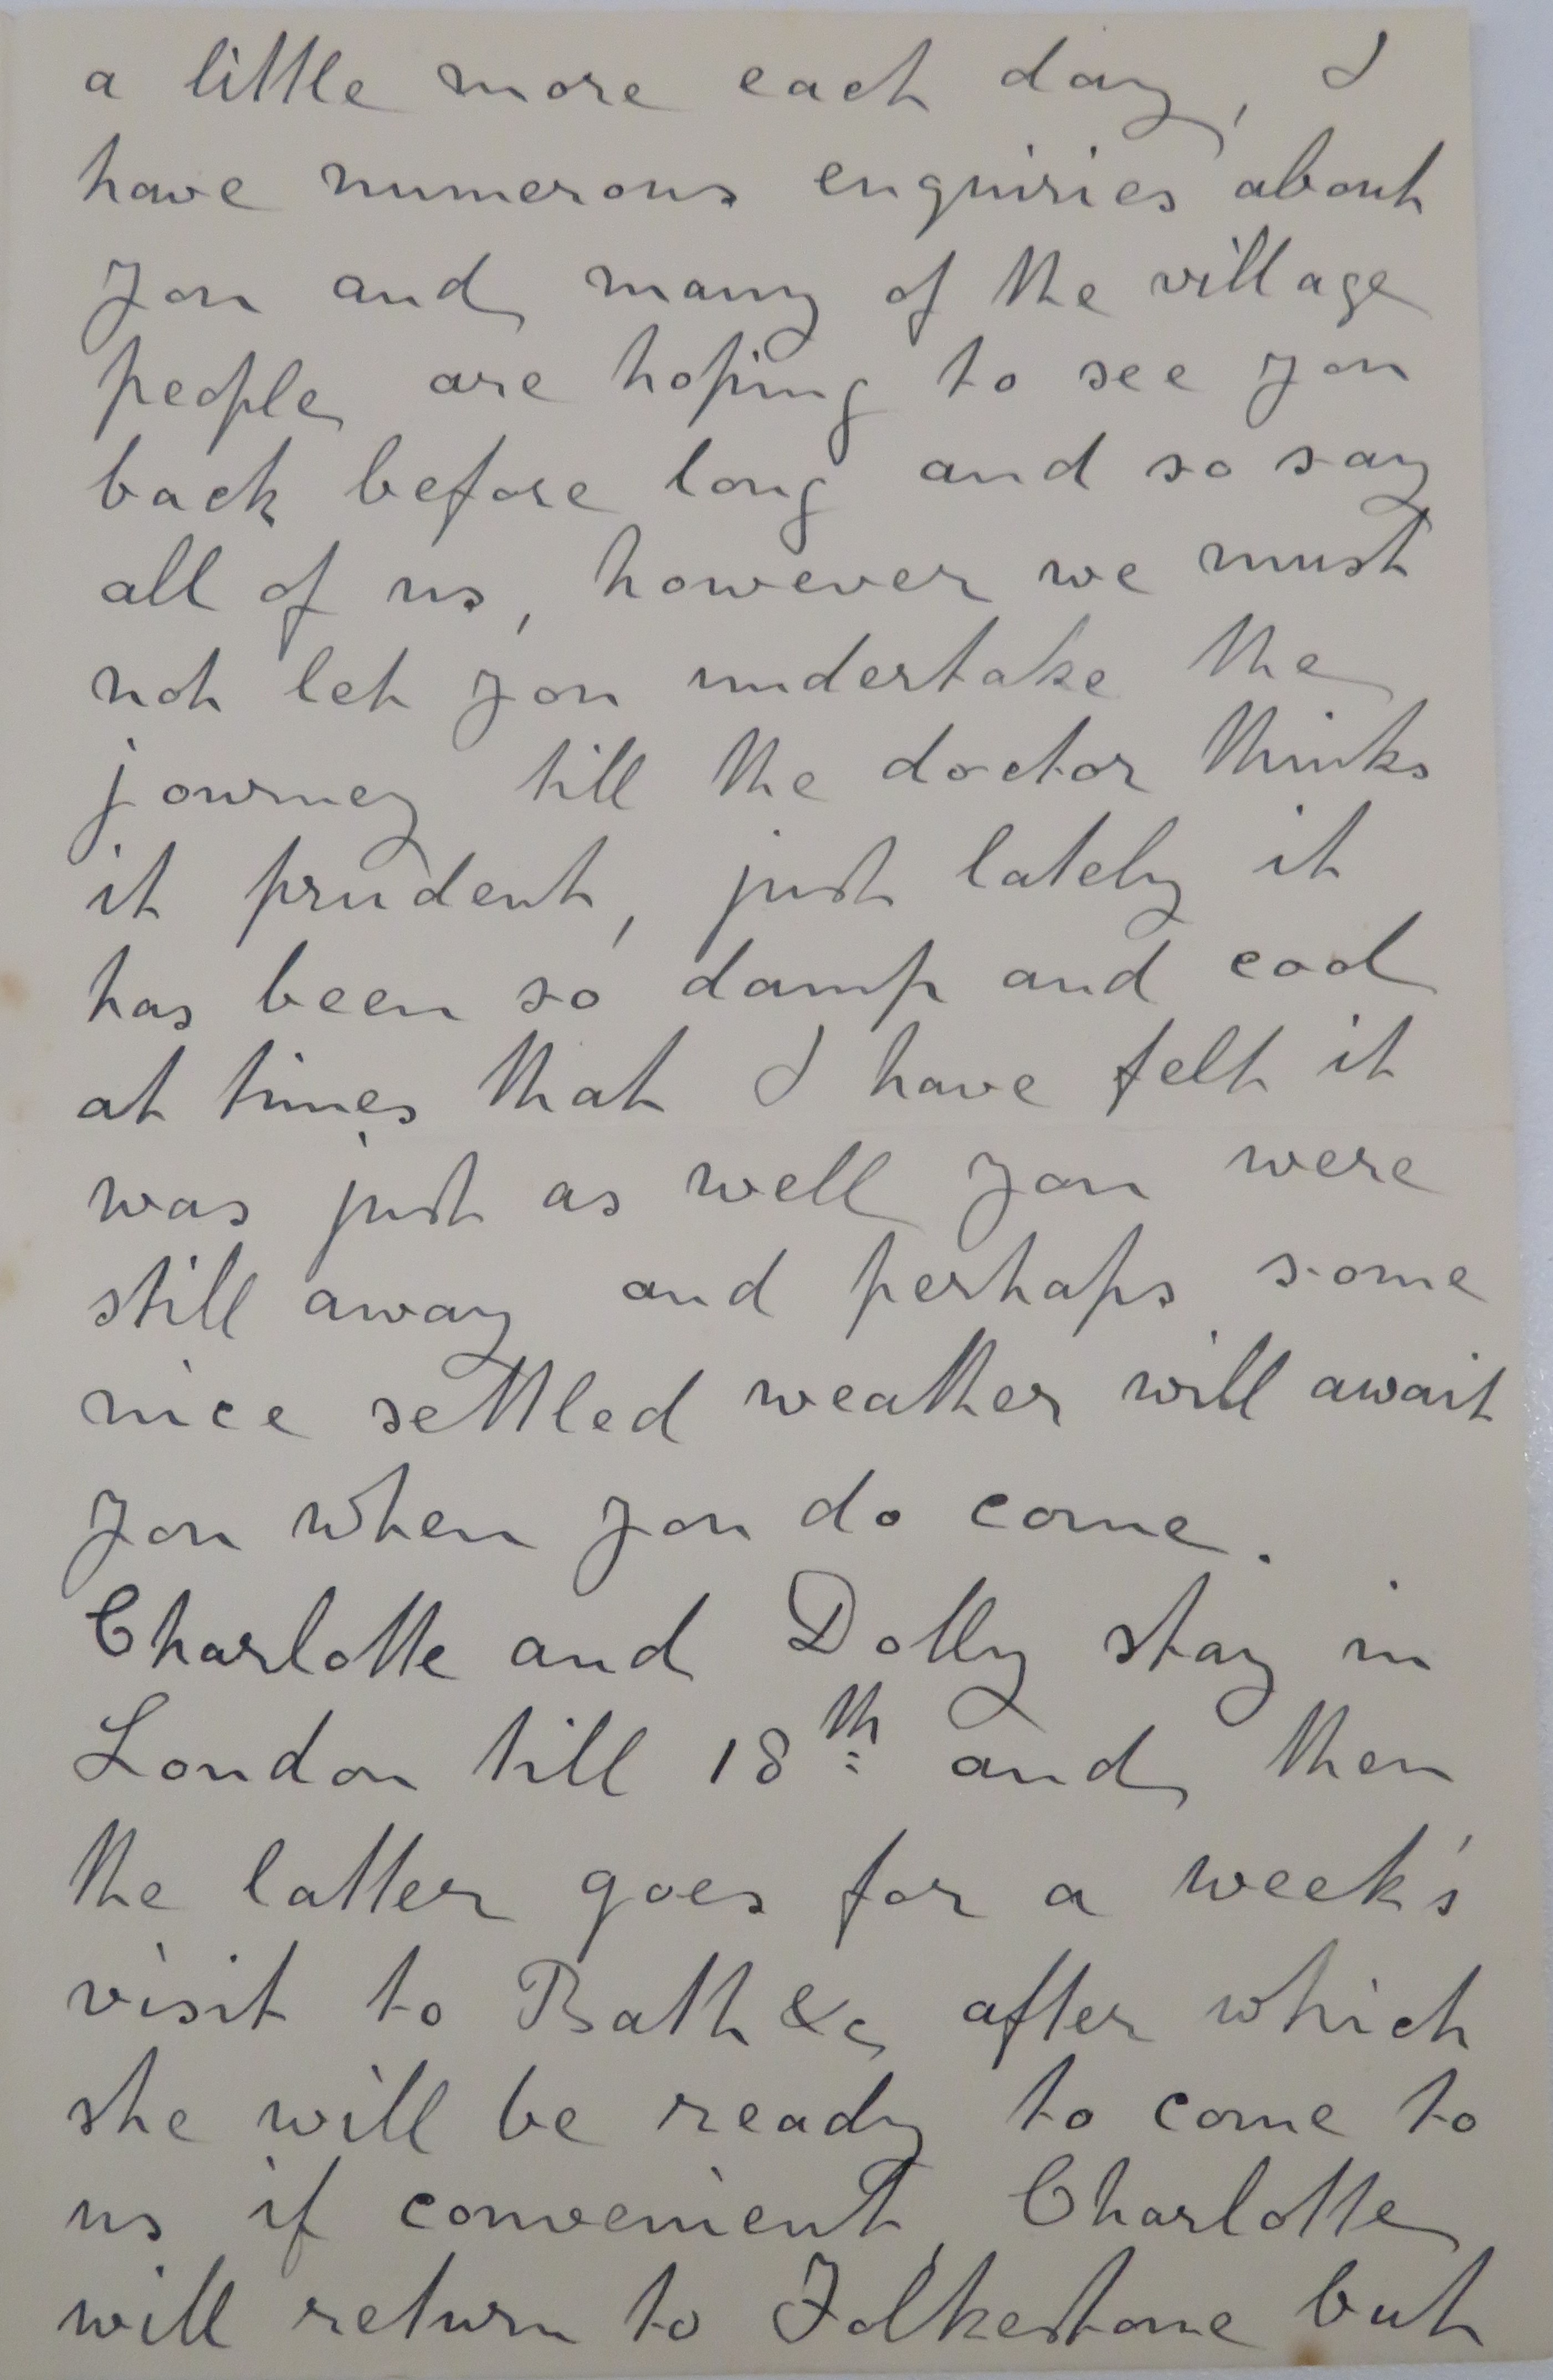 a little more each day, I
have numerous enquiries about
you and many of the village
people are hoping to see you
back before long and so say
all of us, however we must
not let you undertake the
journey till the doctor thinks
it prudent, just lately it
has been so damp and cool
at times that I have felt it
was just as well you were
still away and perhaps some
nice settled weather will await
you when you do come.
Charlotte and Dolly stay in
London till 18th and then
the latter goes for a week's
visit to Bath &c after which
she will be ready to come to
us if convenient, Charlotte
will return to Folkestone but